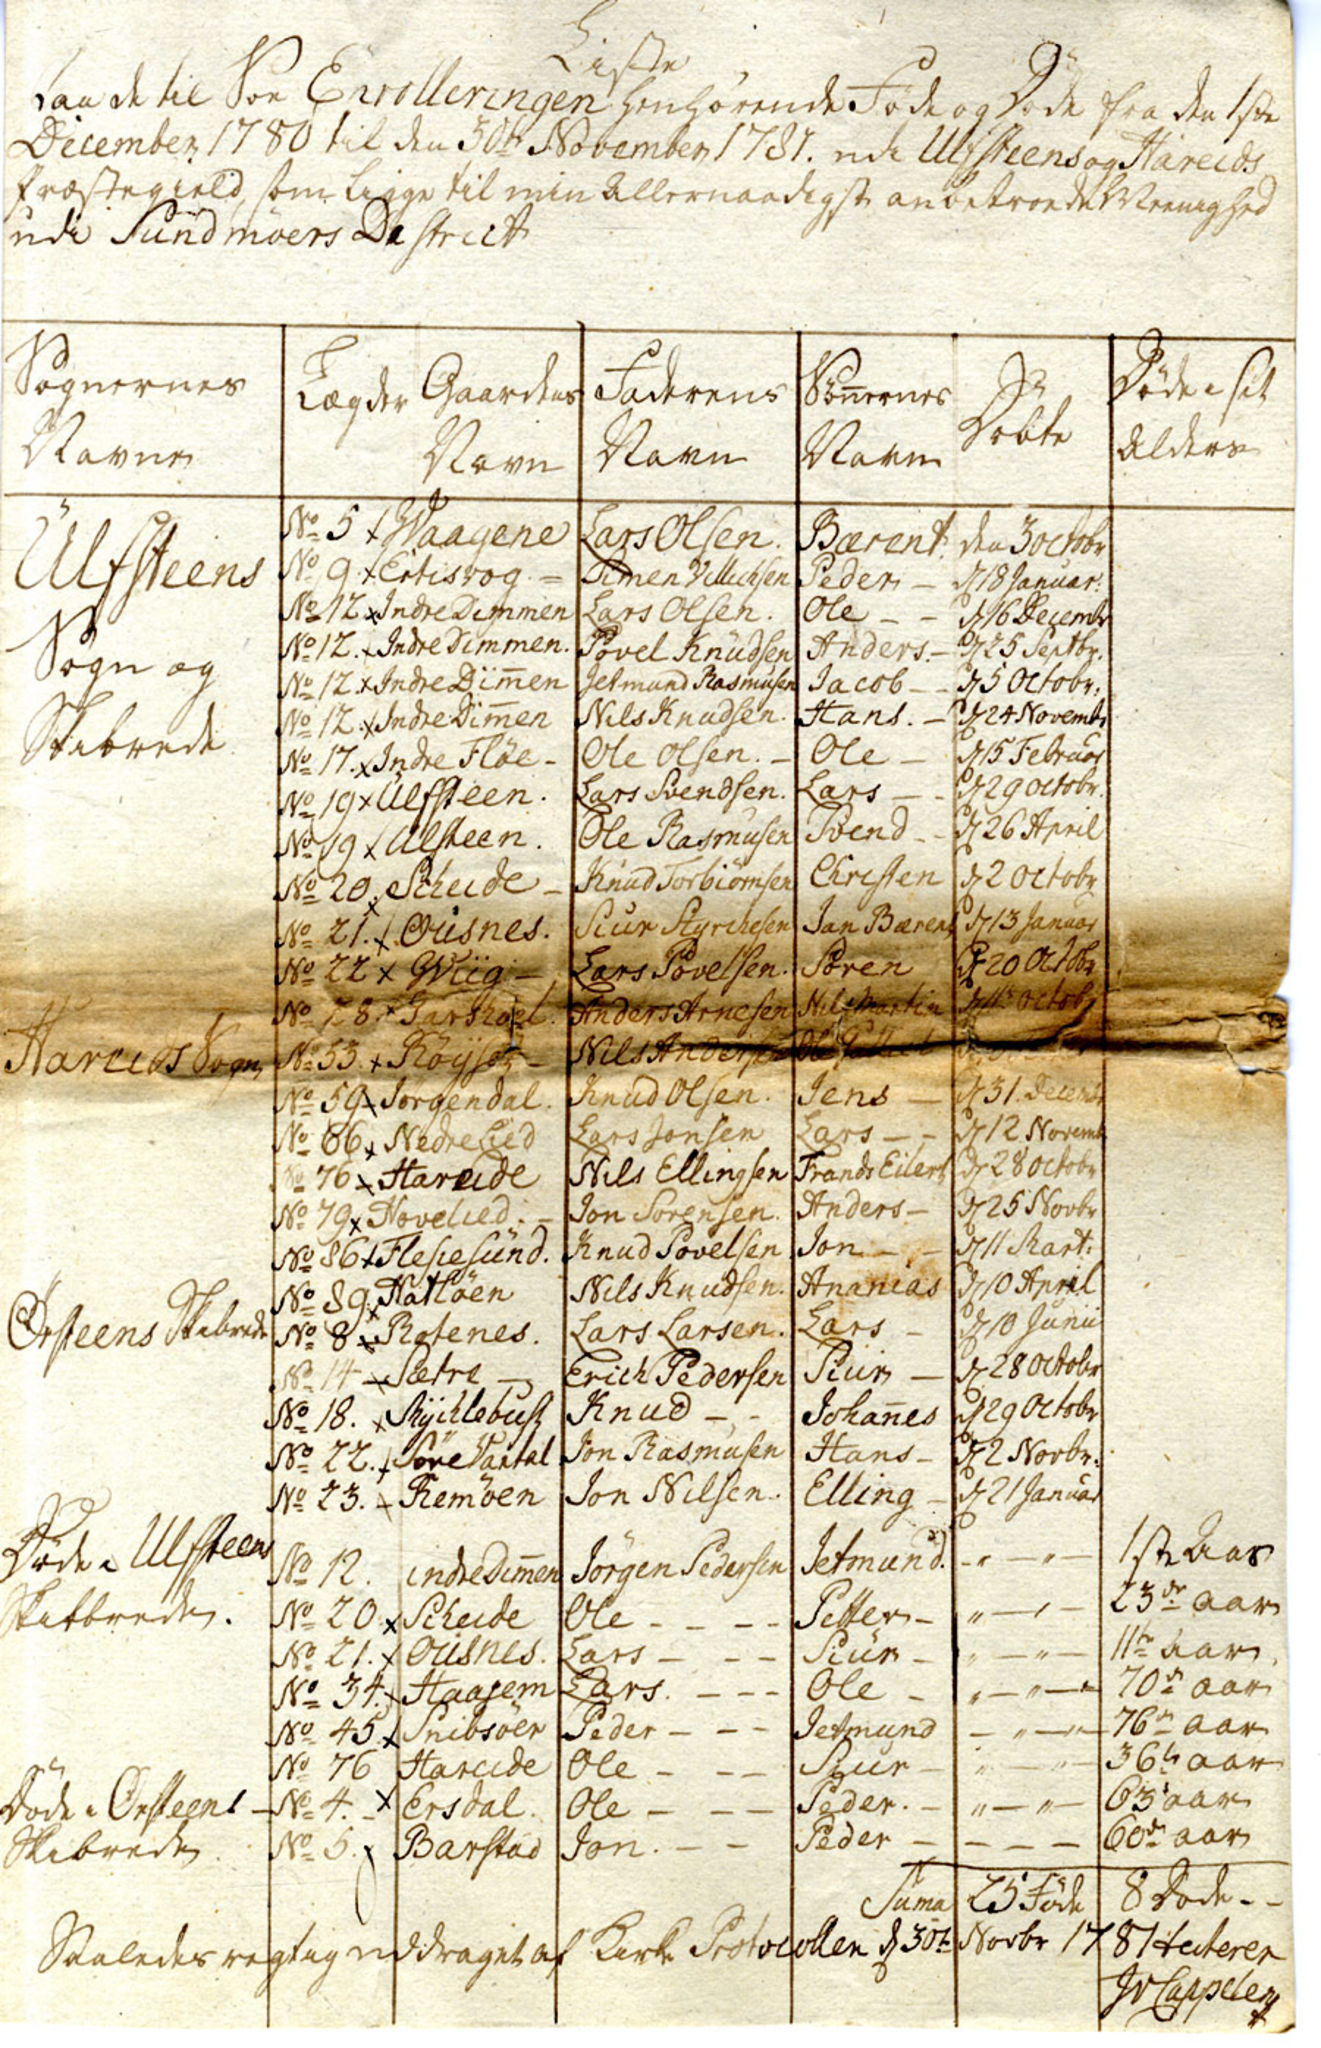 Liste
Paa de til Søe Enrolleringen henhørende Føde og Døde fra den 1ste
December 1780 til den 30te November 1781. udi Ulfsteens og Hareids
Præstegield, som ligge til min Allernaadigst anbetroede Menighed
udi Sundmøers District
Sognernes Navne | Lægder | Gaardens Navn | Faderens Navn | Sönnernes Navn | Döbte | Döde i sit Alders
Ulfsteens Sogn og Skibrede | No 5 x Waagene | Lars Olsen. | Bærent | den 3 octobr
No 9 x Ertisvog = | Simen | Peder – | d 18 Januar:
No 12 x Indre Dimmen | Lars Olsen. | Ole – – | d 16 Decembr
No 12. x Indre Dimmen. | Povel Knudsen | Anders. – | d 25 Septbr.
No 12 x Indre Dim̄en | Jetmund Rasmusen | Jacob – – | d 5 Octobr.
No 12. x Indre Dim̄en | Nils Knudsen. | Hans. – | d 24 Novembr
No 17. x Indre Fløe – | Ole Olsen. – | Ole – | d 15 Februar
No 19 x Ulfsteen. | Lars Svendsen. | Lars – – | d 29 octobr.
No 19 x Ulsteen. | Ole Rasmusen | Svend – – | d 26 April
No 20. x Scheide – | Knud Torbiörnsen | Christen | d 2 Octobr
No 21. x Ousnes. | Siur Styrchesen | Jan Bærent | d 13 Januar
No 22 x Wiig – | Lars Povelsen. | Sören | d 20 Octobr
No 28. x | Anders Arnesen | Nils Martin | d 11te Octobr
Hareids Sogn | No 53. x Röyset – | Nils Andersen | Ole
No 59 x Jörgendal. | Knud Olsen. | Jens – | d 31. Decembr
No 66 x Nedrelied | Lars Jonsen | Lars – – | d 12 Novembr
No 76 x Hareide | Nils Ellingsen | Frands Eilert | d 28 octobr
No 79 x Hovelied. – | Jon Sorensen. | Anders – | d 25 Novbr
No 86 x Flesiesund. | Knud Povelsen | Jon – – | d 11 Mart:
No 89 x Hatløen | Nils Knudsen. | Ananias | d 10 April
Ørsteens Skibrede | No 8 x Rotenes. | Lars Larsen. | Lars – | d 10 Junii
No 14 x Sætre – | Erich Pedersen | Siur – | d 28 Octobr
No 18. x Myklebust | Knud – – | Johan̄es | d 29 Octobr
No 22. x Søre Vartal | Jon Rasmusen | Hans – | d 2 Novbr:
No 23. – Remöen | Jon Nilsen. | Elling – | d 21 Januar
Døde i Ulfsteens Skibrede. | No 12. | indre Dim̄en | Jörgen Pedersen | Jetmund. | – " – " – | 1ste Aar
No 20 x Scheide | Ole – – – – | Petter – | " – " – | 23de aar
No 21. x Ousnes. | Lars – – – | Siur – | " – " – | 11te aar
No 34. x Haasem | Lars. – – – | Ole – | " – " – | 70de aar
No 45. x Snibsöer | Peder – – – | Jetmund | – " – " – | 76de aar
No 76 Hareide | Ole – – – | Siur – | " – " – | 36te aar
Døde i Ørsteens Skibrede | No 4. x Ersdal. | Ole – – – | Peder. – | " – " – | 63 aar
No 5. x Barstad | Jon. – – | Peder – | – – – | 60de aar
Suma | 25 Föde | 8 Døde – –
Saaledes rigtig uddraget af Kirke Protocollen d 30te Novbr 1781 testerer
JvCappelen